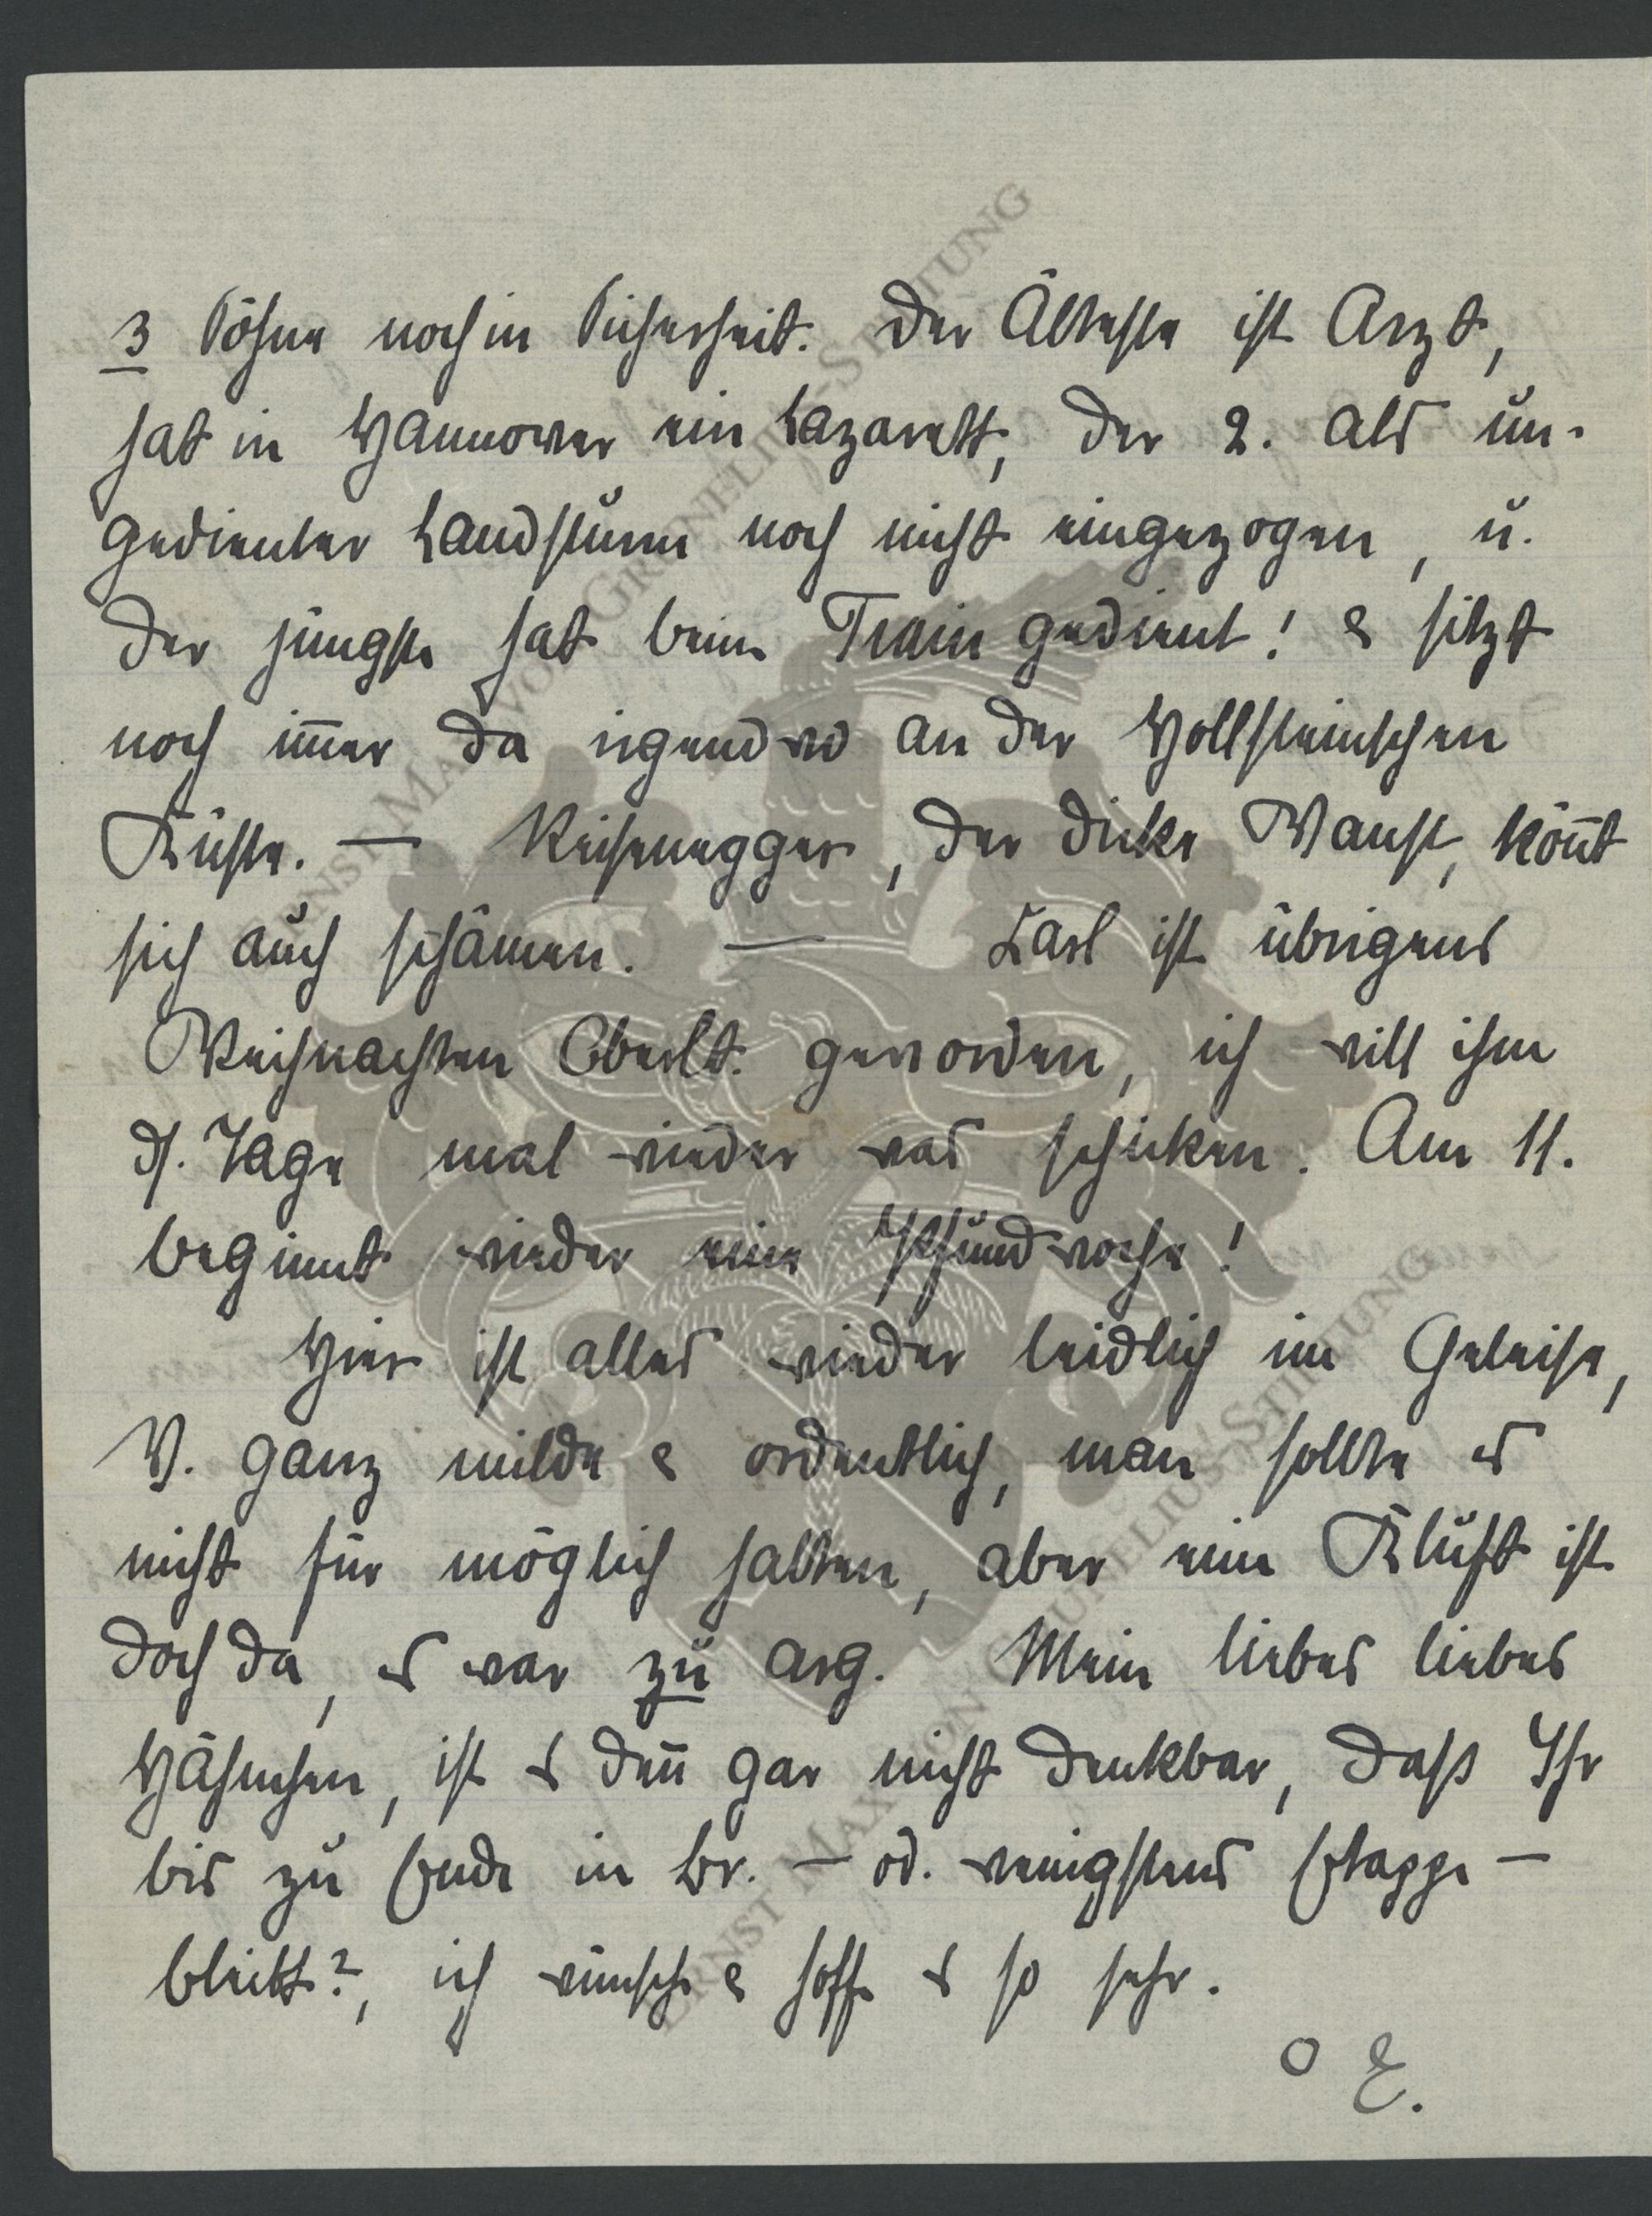 3 Söhne noch in Sicherheit. Der Älteste ist Arzt,
hat in Hannover ein Lazarett, der 2. als un-
gedienter Landsturm noch nicht eingezogen, u.
der jüngste hat beim Train gedient! & sitzt
noch im̅er da irgendwo an der Hollsteinschen
Küste. — der dicke Wanst, kön̅t
sich auch schämen. — Karl ist übrigens
Weihnachten Oberlt. geworden, ich will ihm
d. Tage mal wieder was schicken. Am 11.
beginnt wieder eine Pfundwoche!
Hier ist alles wieder leidlich im Geleise,
V. ganz milde & ordentlich, man sollte es
nicht für möglich halten, aber eine Kluft ist
doch da, es war zu arg. Mein liebes liebes
Hähnchen, ist es den̅ gar nicht denkbar, daß Ihr
bis zu Ende in Br. — od. wenigstens Etappe —
bleibt?, ich wünsche & hoffe es so sehr.
O E.
ERNST MAX VON GRUNELIUS-STIFTUNG
ERNST MAX VON GRUNELIUS-STIFTUNG